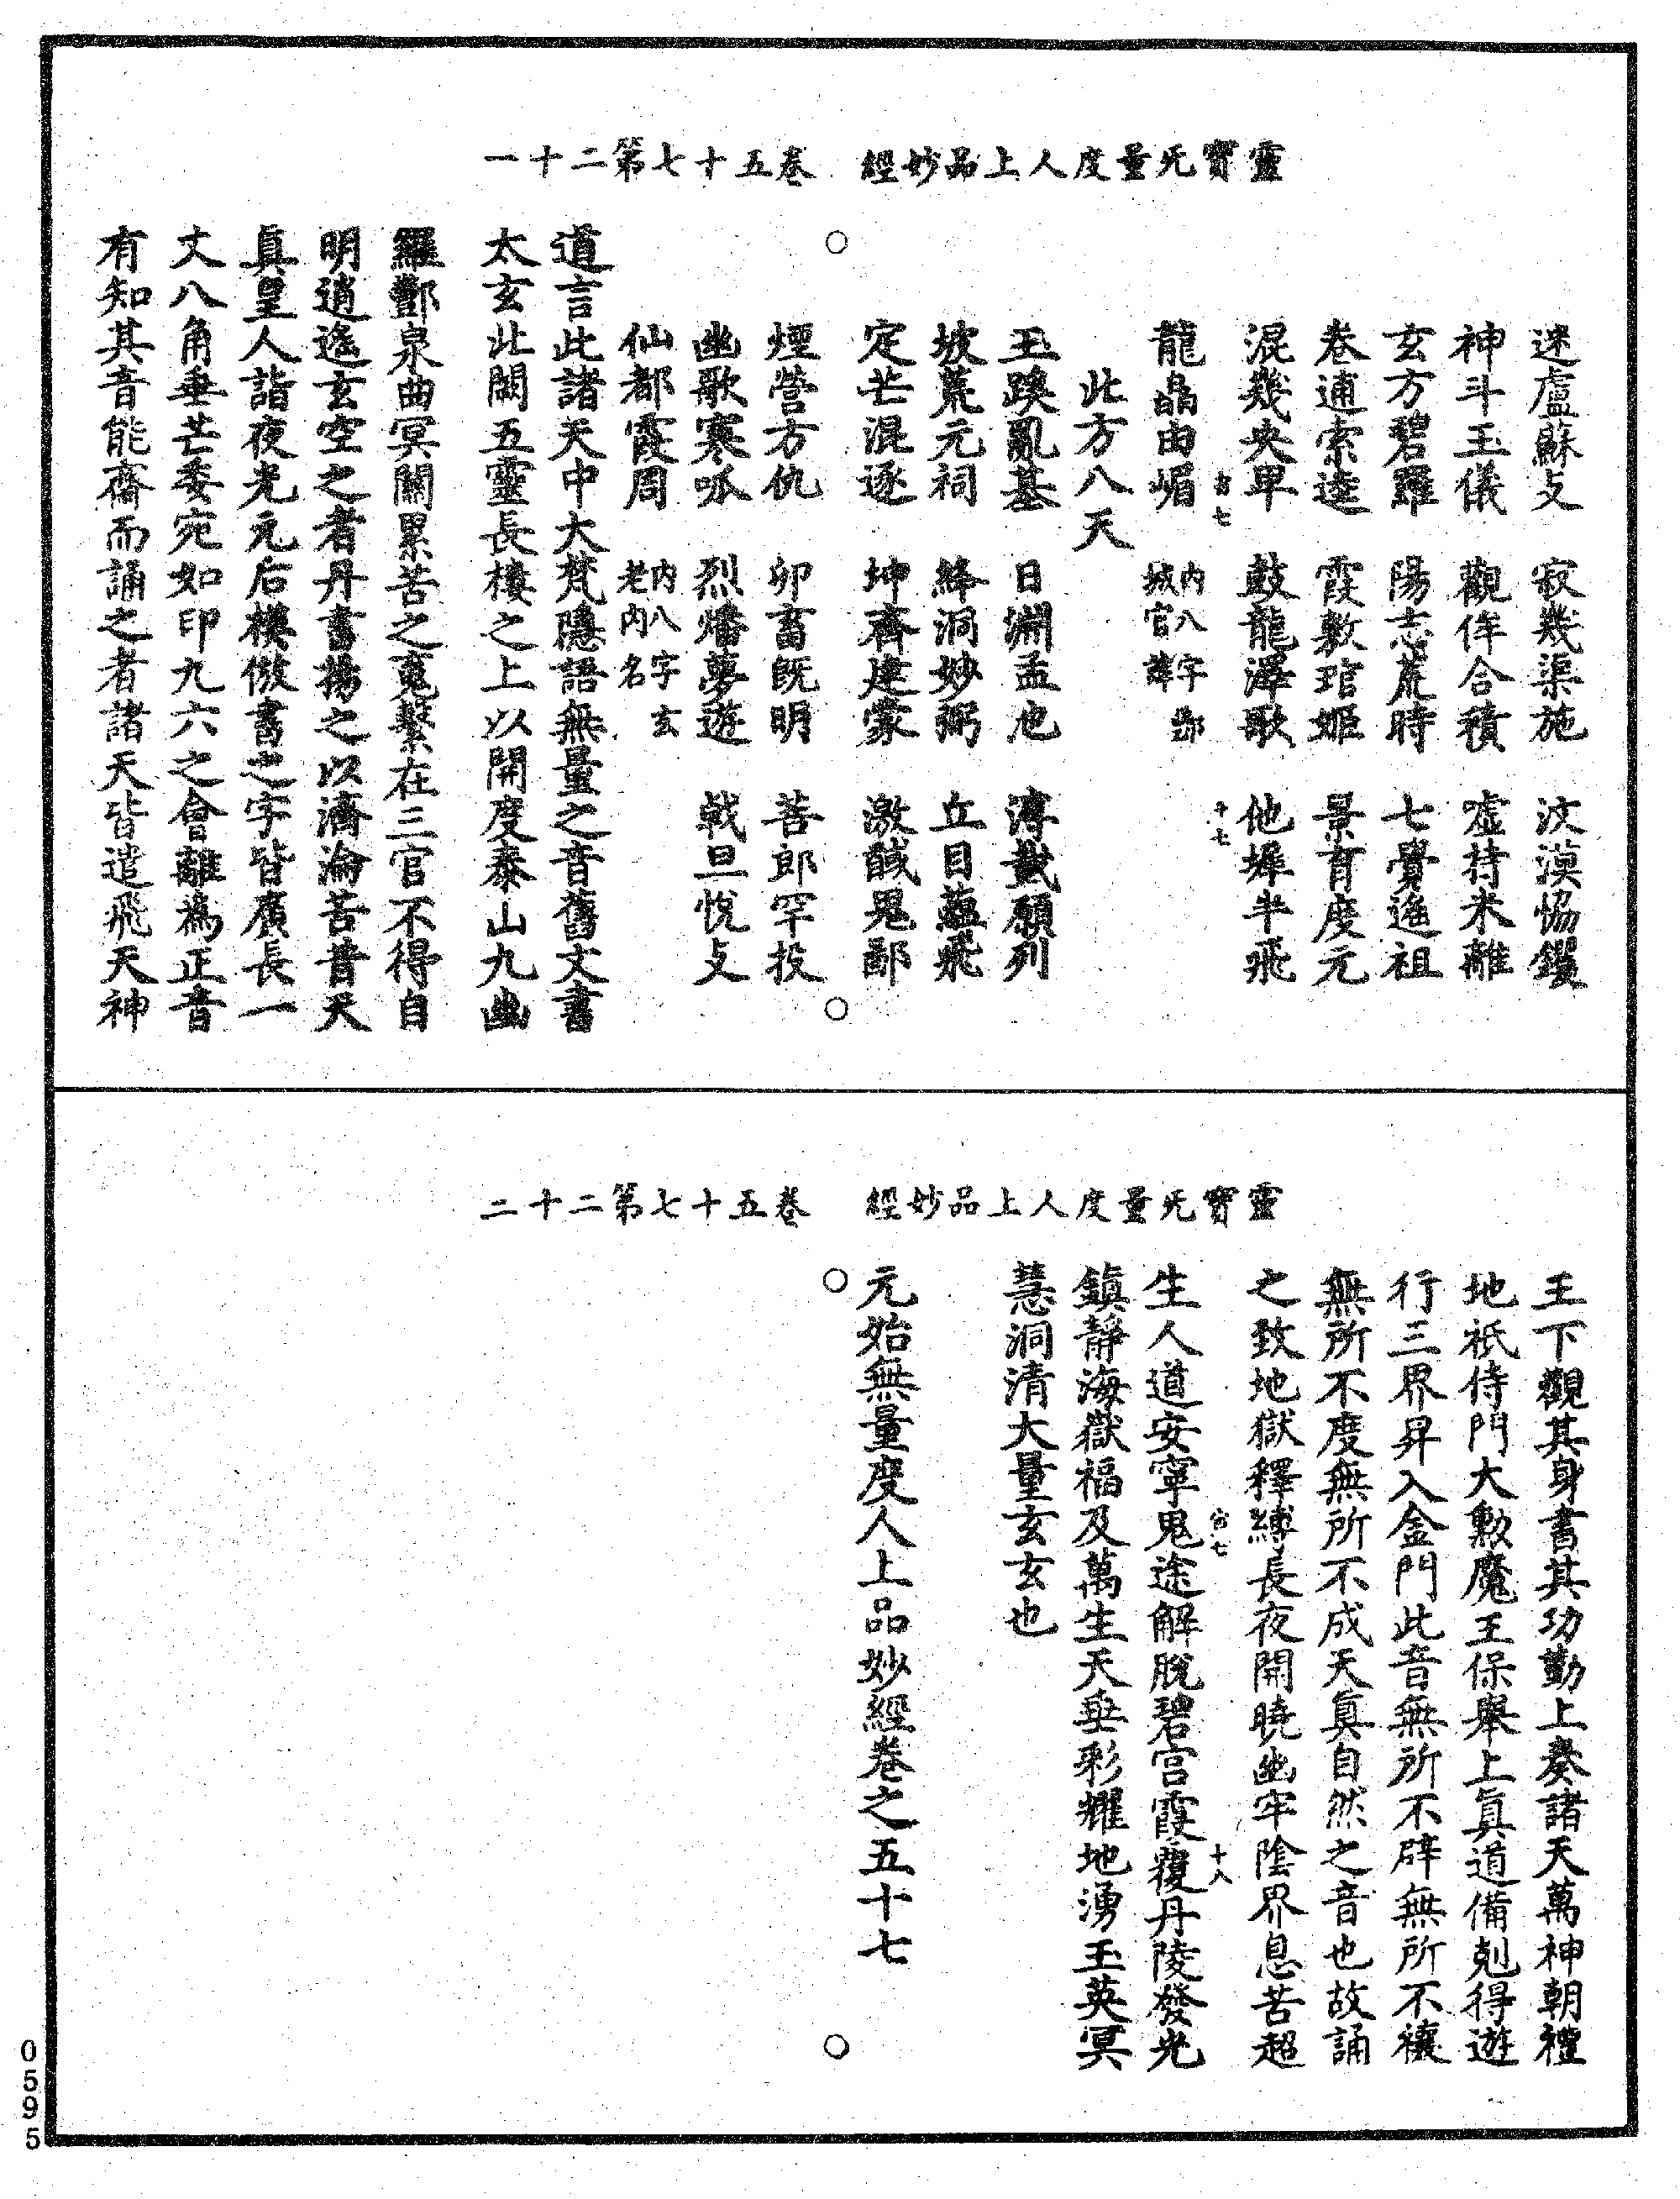 靈寶旡量度人上品妙經　卷五十七第二十一
迷盧蘇攴　寂幾渠施　汶漠恊鑁
神斗玉儀　觀侔合積　墟持米離
玄方碧羅　陽志荒時　七覺進祖
卷逋索逵　霞敷琯姬　景育度元
混幾央卑　鼓龍澤歌　他墀半飛
龍晶由嵋　内八字鄷城官諱
此方八天
玉蹊亂基　日淵孟也　薄戴願列
坡荒元祠　絳洞妙弼　丘目蘊飛
定芒混逐　坤齊建蒙　激馘晃鄙
煙營方仇　卯畜旣明　菩郎罕投
幽歌寒呱　烈燔夢遊　戟旦悅攴
仙都霞周　内八字玄老内名
道言此諸天中大梵隱語無量之音舊文書
太玄北闕五靈長樓之上以開度泰山九幽
羅酆泉曲冥關累苦之䰟繫在三官不得自
明逍遙玄空之者丹書揚之以濟淪苦昔天
眞皇人詣夜光元后模倣書之字皆廣長一
丈八角垂芒委宛如印九六之會離爲正音
有知其音能齋而誦之者諸天皆遣飛天神
靈寶旡量度人上品妙經　卷五十七第二十二
王下觀其身書其功勤上奏諸天萬神朝禮
地祇侍門大勲魔王保舉上眞道備剋得遊
行三界昇入金門此音無所不辟無所不禳
無所不度無所不成天眞自然之音也故誦
之致地獄釋縛長夜開曉幽牢陰界息苦超
生人道安寜鬼途解脫碧宫霞覆丹陵發光
鎮靜海嶽福及萬生天垂彩耀地湧玉英冥
慧洞清大量玄玄也
元始無量度人上品妙經卷之五十七
0595